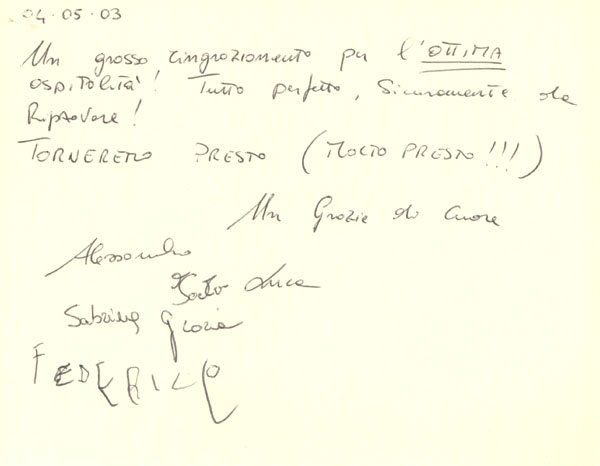 04.05.03
Un grosso ringraziamento per l'OTTIMA
ospitalità! Tutto perfetto, Sicuramente da
Riprovare!
TORNEREMO PRESTO (MOLTO PRESTO!!!)
Un Grazie di Cuore
Alessandro
Luca
Sabrina Gloria
FEDERICO